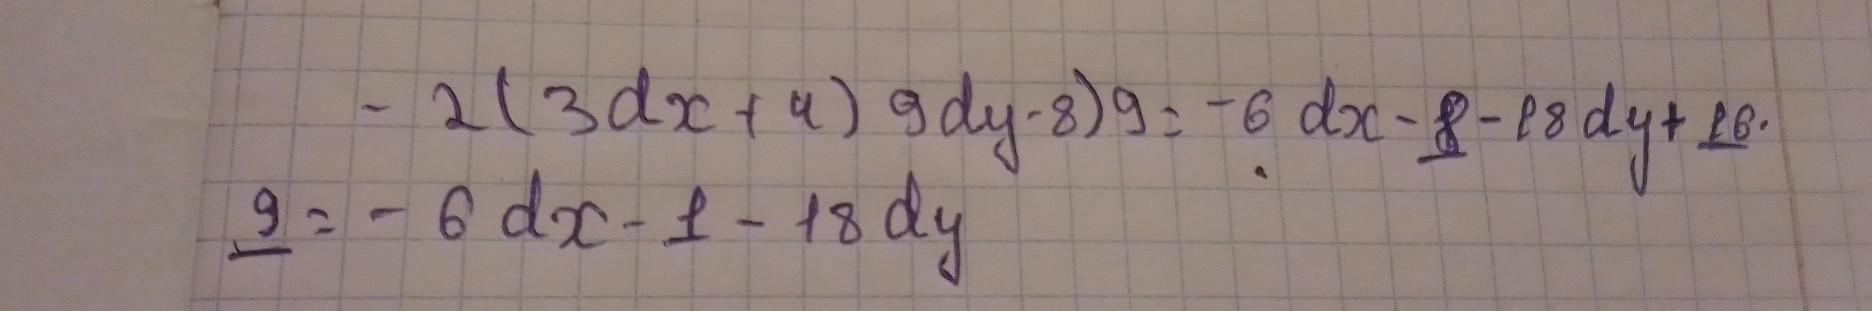 - 2(3dx+4) 9dy-8)9=-6 dx-8-18dy+16.
9=-6 dx-1-18 dy